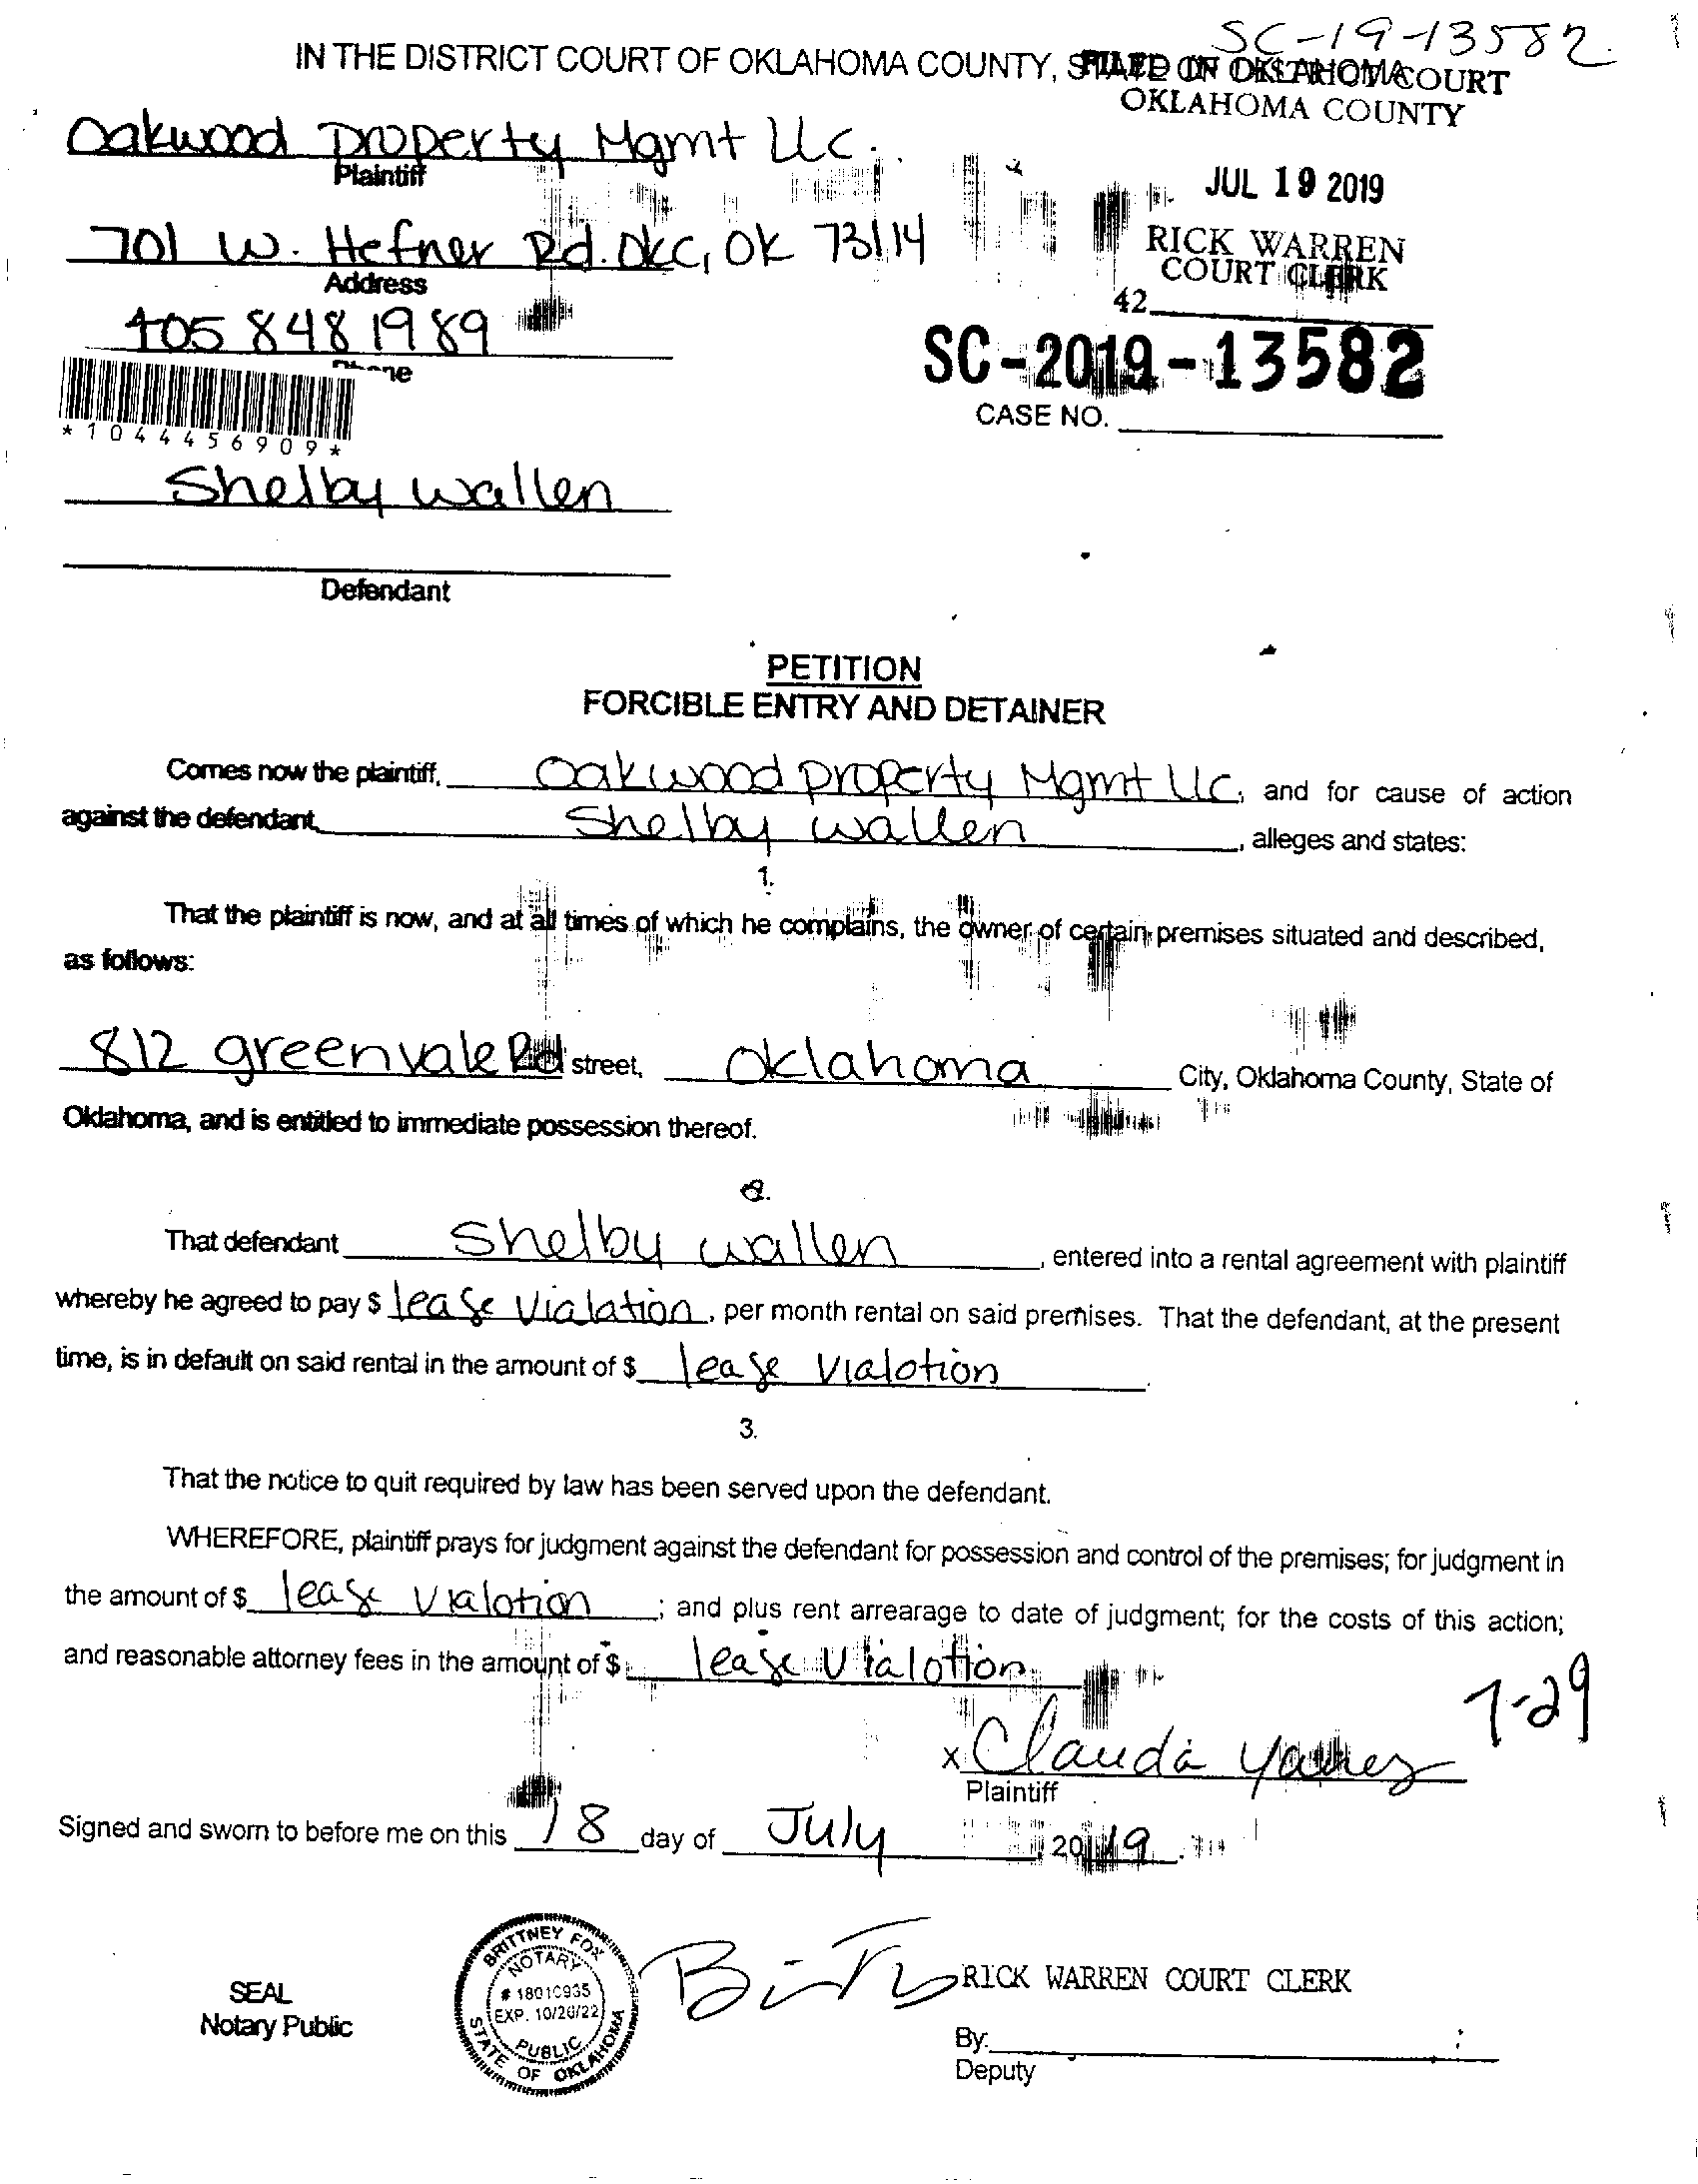 SC-19-13582
IN THE DISTRICT COURT OF OKLAHOMA COUNTY, STATE OF OKLAHOMA
FILED IN DISTRICT COURT
OKLAHOMA COUNTY
Oakwood Property Mgmt LLC.
Plaintiff
JUL 19 2019
701 W. Hefner Rd. OKC, OK 73114
Address
RICK WARREN
COURT CLERK
42
405 848 1989
Phone
SC-2019-13582
CASE NO.
*1044456909*
Shelby Wallen
Defendant
PETITION
FORCIBLE ENTRY AND DETAINER
Comes now the plaintiff, Oakwood Property Mgmt LLC, and for cause of action
against the defendant, Shelby Wallen, alleges and states:
1.
That the plaintiff is now, and at all times of which he complains, the owner of certain premises situated and described,
as follows:
812 greenvale Rd street, Oklahoma City, Oklahoma County, State of
Oklahoma, and is entitled to immediate possession thereof.
2.
That defendant Shelby Wallen, entered into a rental agreement with plaintiff
whereby he agreed to pay $ lease Vialation, per month rental on said premises. That the defendant, at the present
time, is in default on said rental in the amount of $ lease Vialotion
3.
That the notice to quit required by law has been served upon the defendant.
WHEREFORE, plaintiff prays for judgment against the defendant for possession and control of the premises; for judgment in
the amount of $ lease Vialotion; and plus rent arrearage to date of judgment; for the costs of this action;
and reasonable attorney fees in the amount of $ lease Vialotion
7-29
x Claudia Yanez
Plaintiff
Signed and sworn to before me on this 18 day of July, 2019.
BRITTNEY FOX
NOTARY
# 18010935
EXP. 10/26/22
PUBLIC
STATE OF OKLAHOMA
SEAL
Notary Public
RICK WARREN COURT CLERK
By:
Deputy